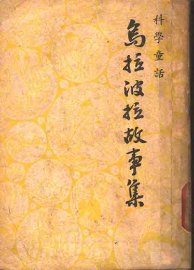 科學童話
烏拉波拉故事集